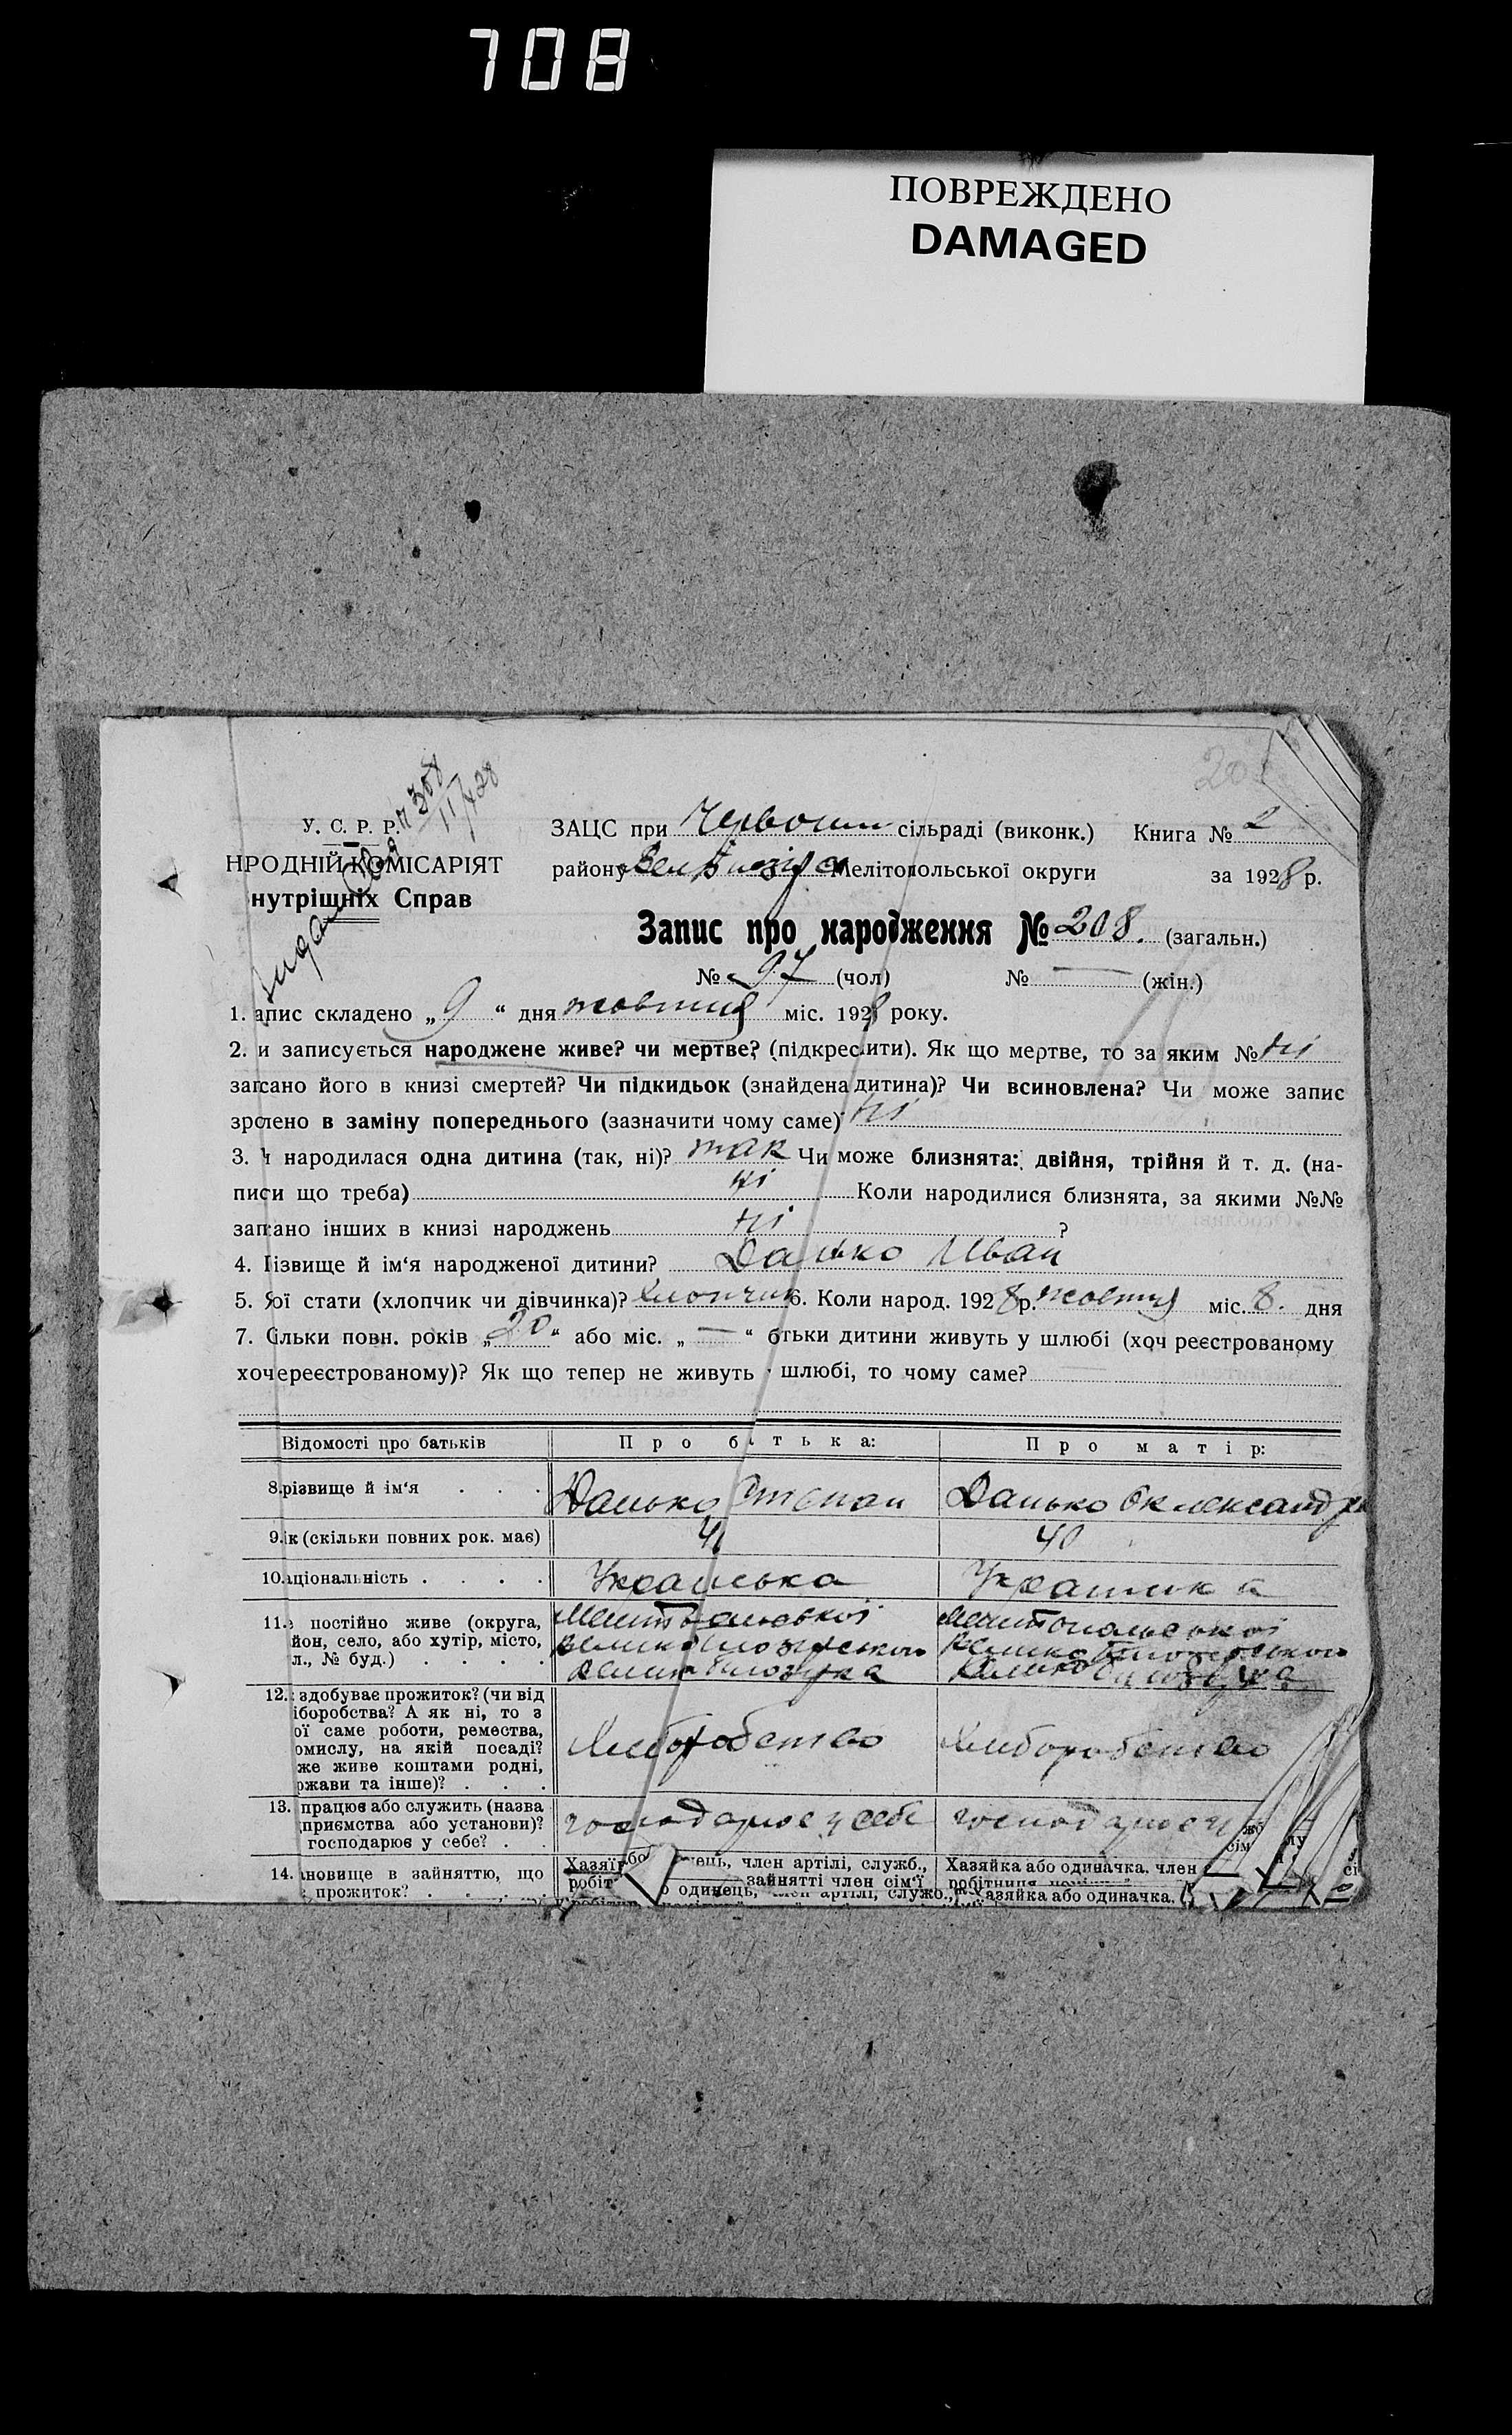 708
ПОВРЕЖДЕНО
DAMAGED
У. С. Р. Р.
НРОДНІЙ КОМІСАРІЯТ
нутрішніх Справ
308
11/X 28
ЗАЦС при сільраді (виконк.) Книга № 2
району Мелітопольської округи за 1928 р.
Запис про народження № 208. (загальн.)
№ 97 (чол) № — (жін.)
1. апис складено „ 9 “ дня жовтня міс. 1928 року.
2. и записується народжене живе? чи мертве? (підкреслити). Як що мертве, то за яким № ні
записано його в книзі смертей? Чи підкидьок (знайдена дитина)? Чи всиновлена? Чи може запис
зроблено в заміну попереднього (зазначити чому саме) ні
3. и народилася одна дитина (так, ні)? так Чи може близнята: двійня, трійня й т. д. (на-
писи що треба) ні Коли народилися близнята, за якими №№
записано інших в книзі народжень ні ?
4. Пізвище й ім'я народженої дитини? Данько Иван
5. Якої стати (хлопчик чи дівчинка)? хлопчик 6. Коли народ. 1928 р. жовтня міс. 8. дня
7. Скільки повн. років „ 20 “ або міс. „ — “ батьки дитини живуть у шлюбі (хоч реєстрованому
хоч нереєстрованому)? Як що тепер не живуть у шлюбі, то чому саме?
Відомості про батьків Про батька: Про матір:
8. різвище й ім'я . . . Данько Степан Данько
9. ік (скільки повних рок. має) 41 40
10. аціональність . . . . Українська Українка
11. е постійно живе (округа, Мелітопольської Мелітопольської
йон, село, або хутір, місто, Великобілозірського Великобілозірського
л., № буд.) . . . . Великобілозірка Великобілозірка
12. здобуває прожиток? (чи від
іборобства? А як ні, то з
ої саме роботи, ремества,
омислу, на якій посаді? Хліборобство Хліборобство
же живе коштами родні,
ржави та інше)? . . .
13. працює або служить (назва
приємства або установи)? господарює у себе господарює у
господарює у себе? . .
14. ановище в зайняттю, що член артілі, служб., Хазяйка або одиначка. член
прожиток? . . . . зайнятті член сім'ї
одинець, член артілі, служб., Хазяйка або одиначка.